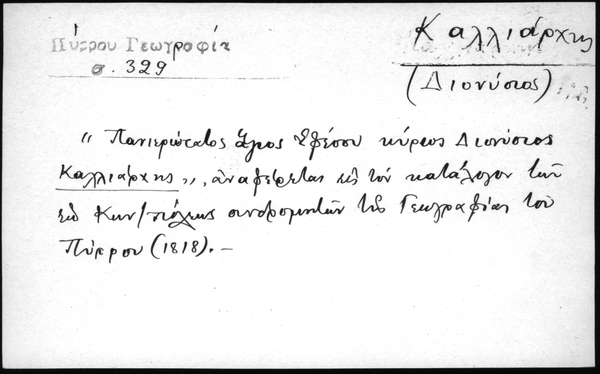 Πύρρου Γεωγραφία
σ. 329
Καλλιάρχης
(Διονύσιος)
"Πανιερώτατος Ἅγιος Ἐφέσου κύριος Διονύσιος
Καλλιάρχης", ἀναφέρεται εἰς τὸν κατάλογον τῶν
ἐν Κων/πόλεως συνδρομητῶν τῆς Γεωγραφίας τοῦ
Πύρρου (1818). –